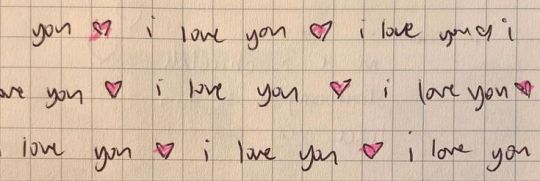 you ♡ i love you ♡ i love you i
ve you ♡ i love you ♡ i love you ♡
i love you ♡ i love you ♡ i love you